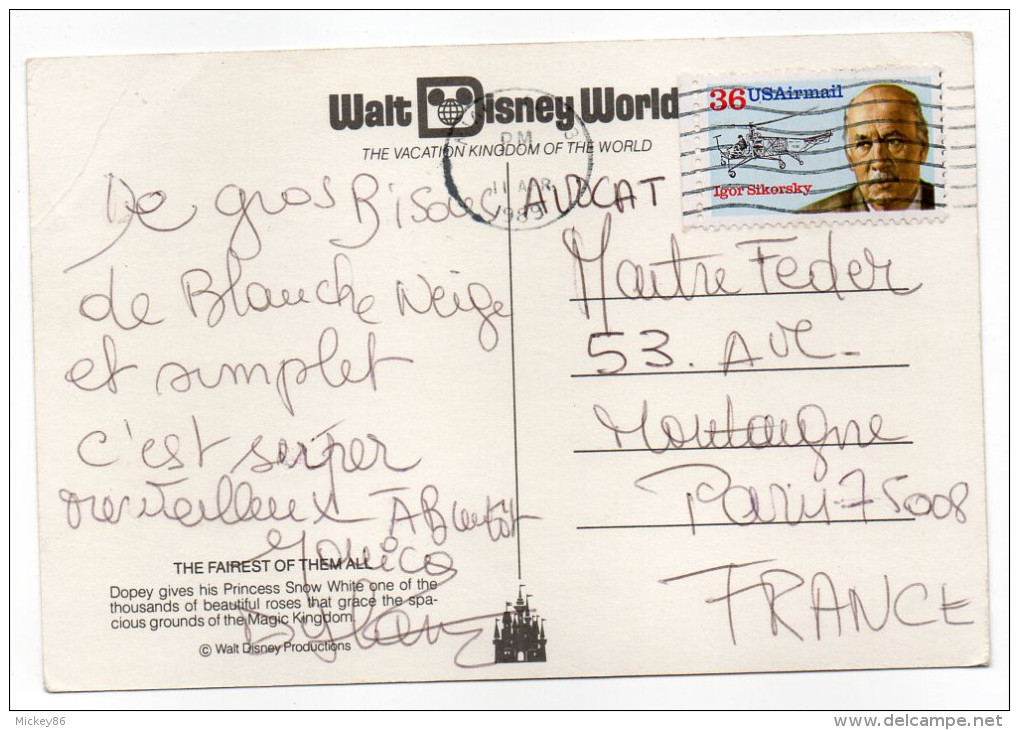 Walt Disney World
THE VACATION KINGDOM OF THE WORLD
36 USAirmail
Igor Sikorsky
PM
11 APR
1989
De gros Bisous
de Blanche Neige
et simplet
c'est super
merveilleux A Bientôt
Monica
AVOCAT
Maitre Feder
53. AVE
Montaigne
Paris 75008
FRANCE
THE FAIREST OF THEM ALL
Dopey gives his Princess Snow White one of the
thousands of beautiful roses that grace the spa-
cious grounds of the Magic Kingdom.
© Walt Disney Productions
Mickey86
www.delcampe.net